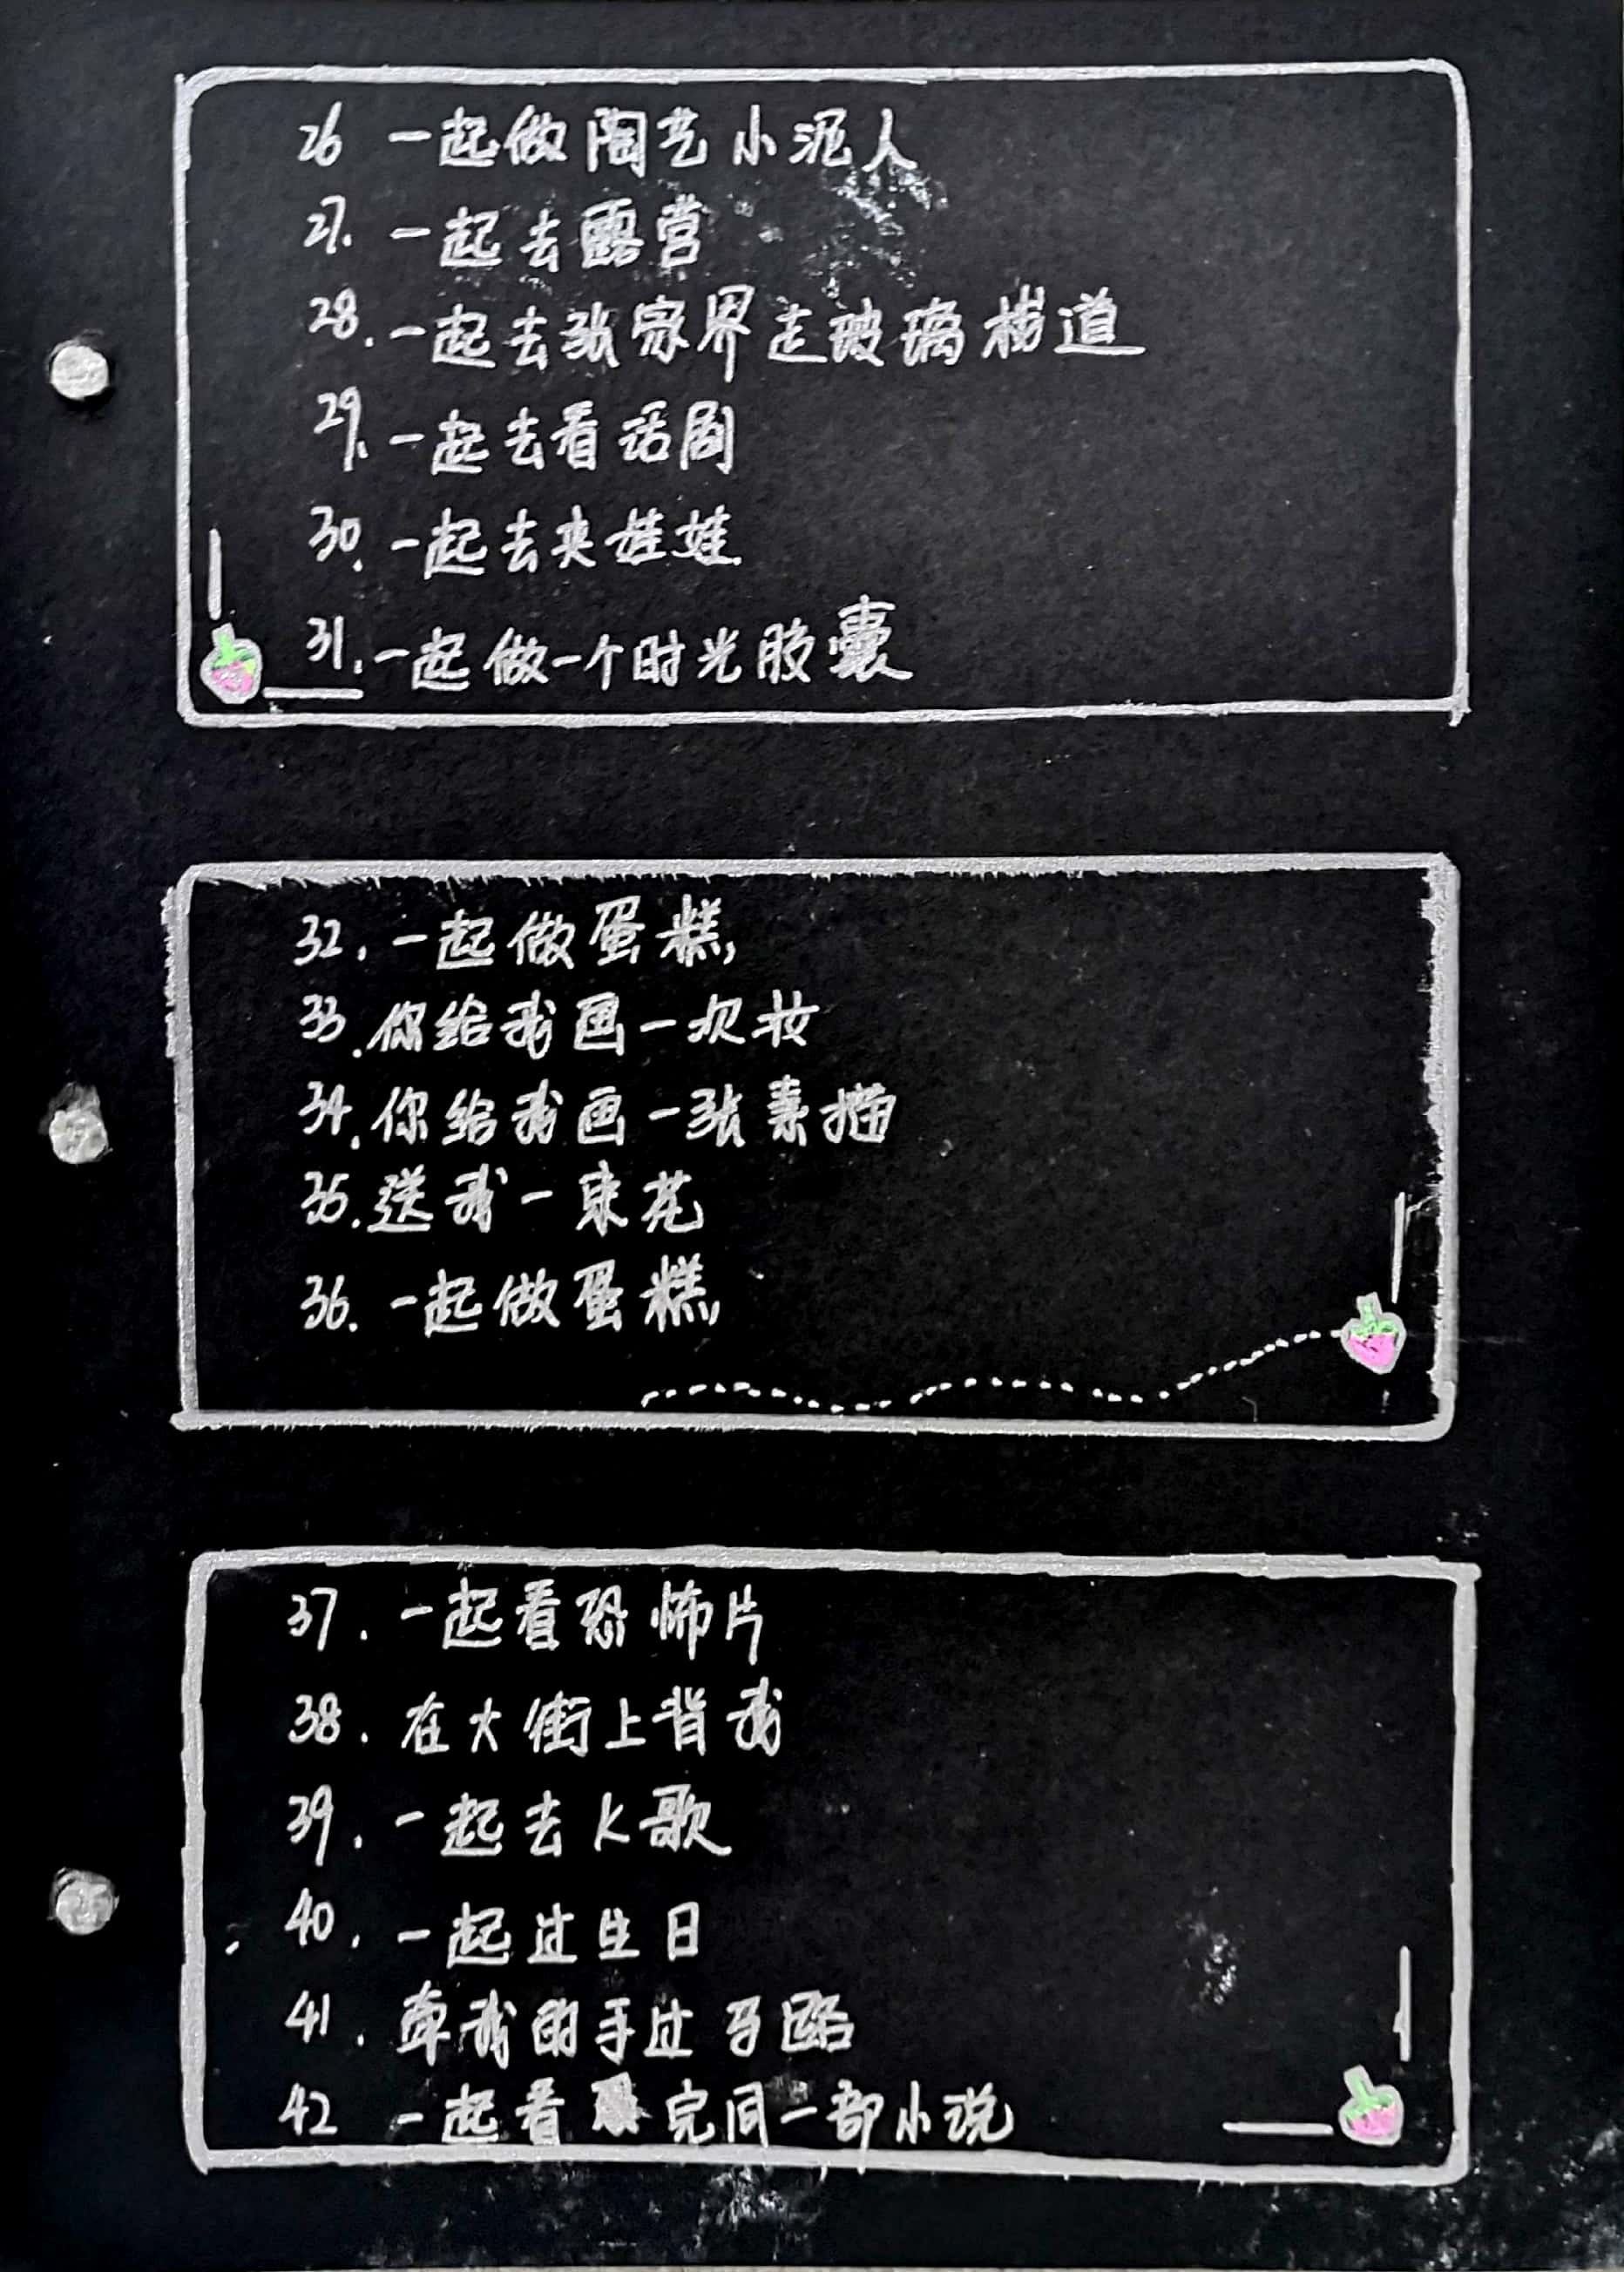 26 一起做陶艺小泥人
27. 一起去露营
28. 一起去张家界走玻璃栈道
29. 一起去看话剧
30. 一起去夹娃娃
31. 一起做一个时光胶囊
32. 一起做蛋糕,
33. 你给我画一次妆
34. 你给我画一张素描
35. 送我一束花
36. 一起做蛋糕,
37. 一起看恐怖片
38. 在大街上背我
39. 一起去K歌
40. 一起过生日
41. 牵我的手过马路
42 一起看完同一部小说